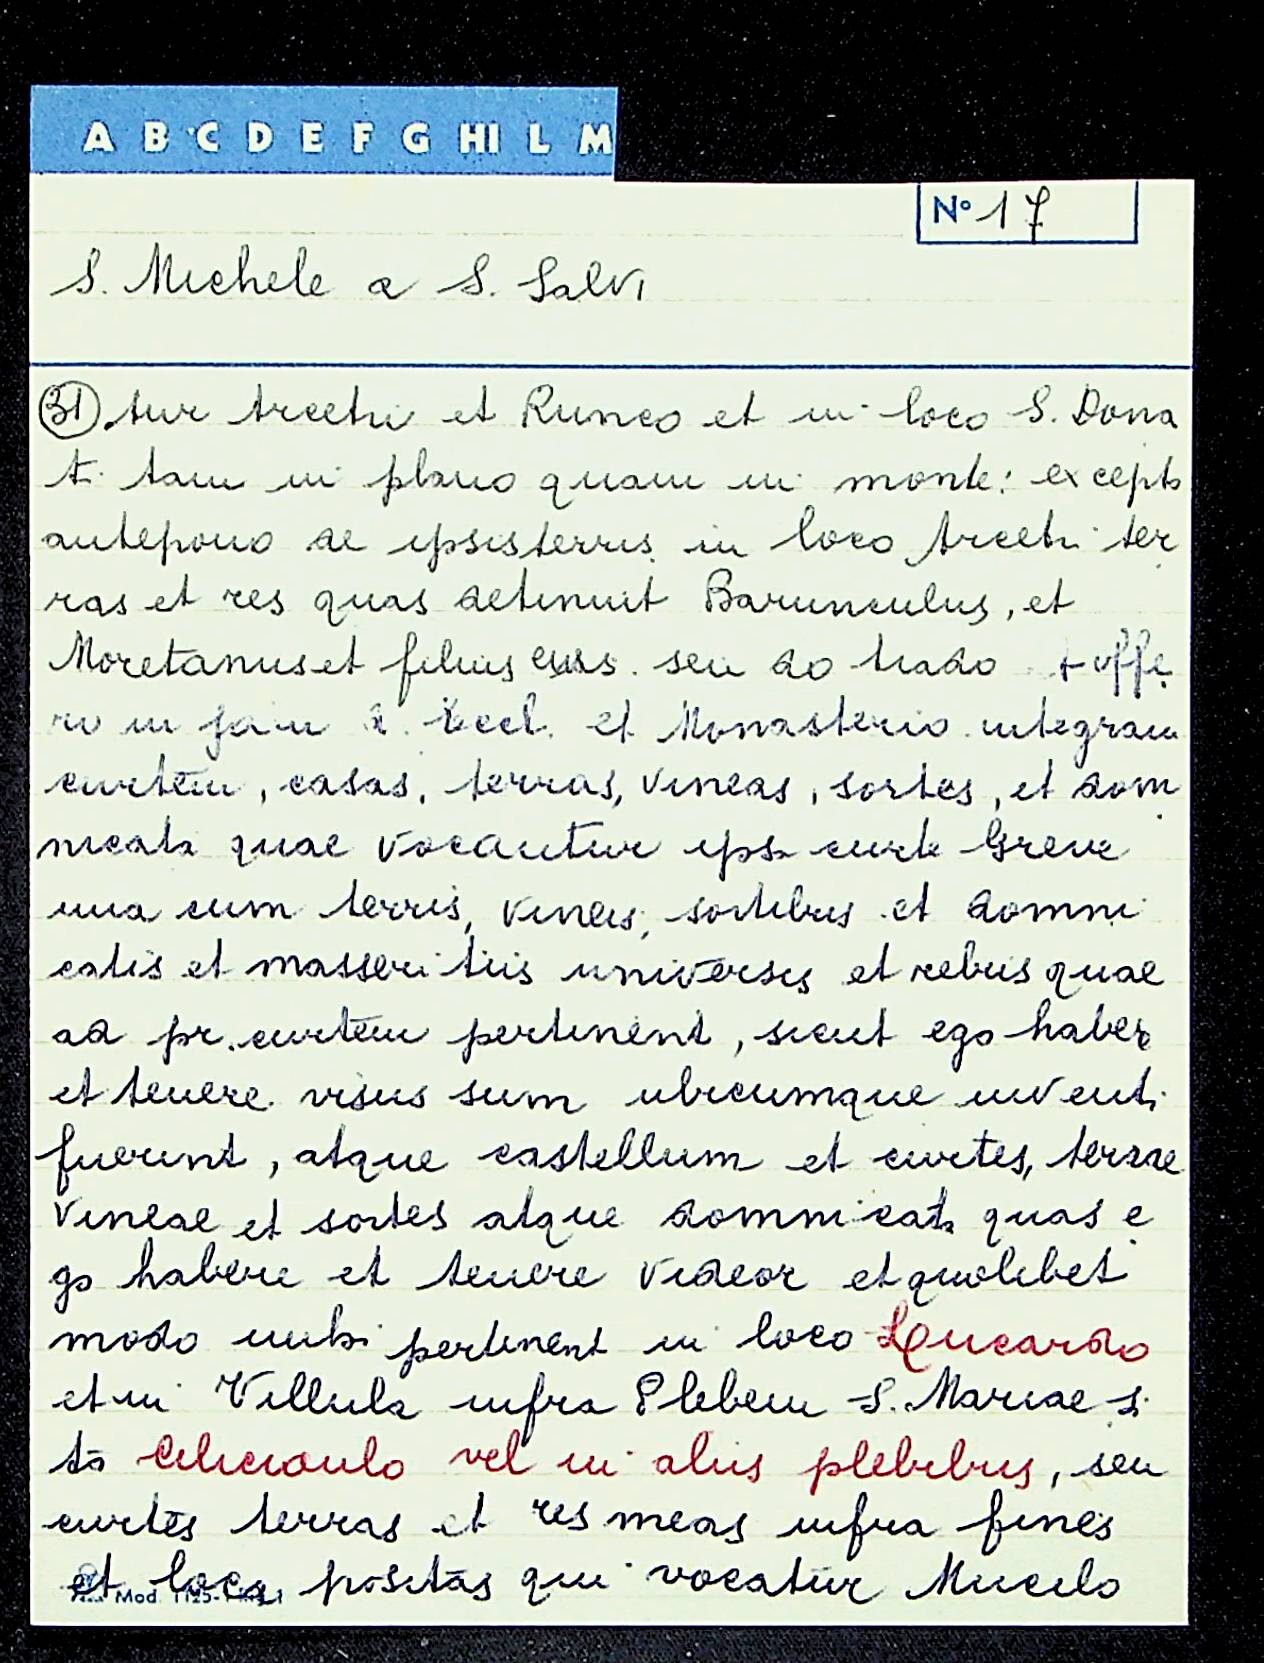 A B C D E F G HI L M
N° 17
S. Michele a S. Salvi
(31). tur Arcetri et Runco et in loco S. Dona
ti tam in plano quam in monte: excepto
antepono de ipsis terris in loco Arcetri ter
ras et res quas detinuit Barunculus, et
Moretanus et filius eius. seu do trado + offe
ro in Eccl. et Monasterio integram
curtem, casas, terras, vineas, sortes, et dom
nicata quae vocantur ipsa curte Greve
una cum terris, vineis, sortibus et domni
catis et masseritiis universis et rebus quae
ad pr. curtem pertinent, sicut ego haber
et tenere visus sum ubicumque inventi
fuerint, atque castellum et curtes, terrae
vineae et sortes atque domnicata quas e
go habere et tenere videor et quolibet
modo mihi pertinent in loco Lucardo
et in Villula infra Plebem S. Mariae si
to Celiciaulo vel in aliis plebibus, seu
curtes terras et res meas infra fines
et loca positas qui vocatur Mucelo
Mod. 1125-